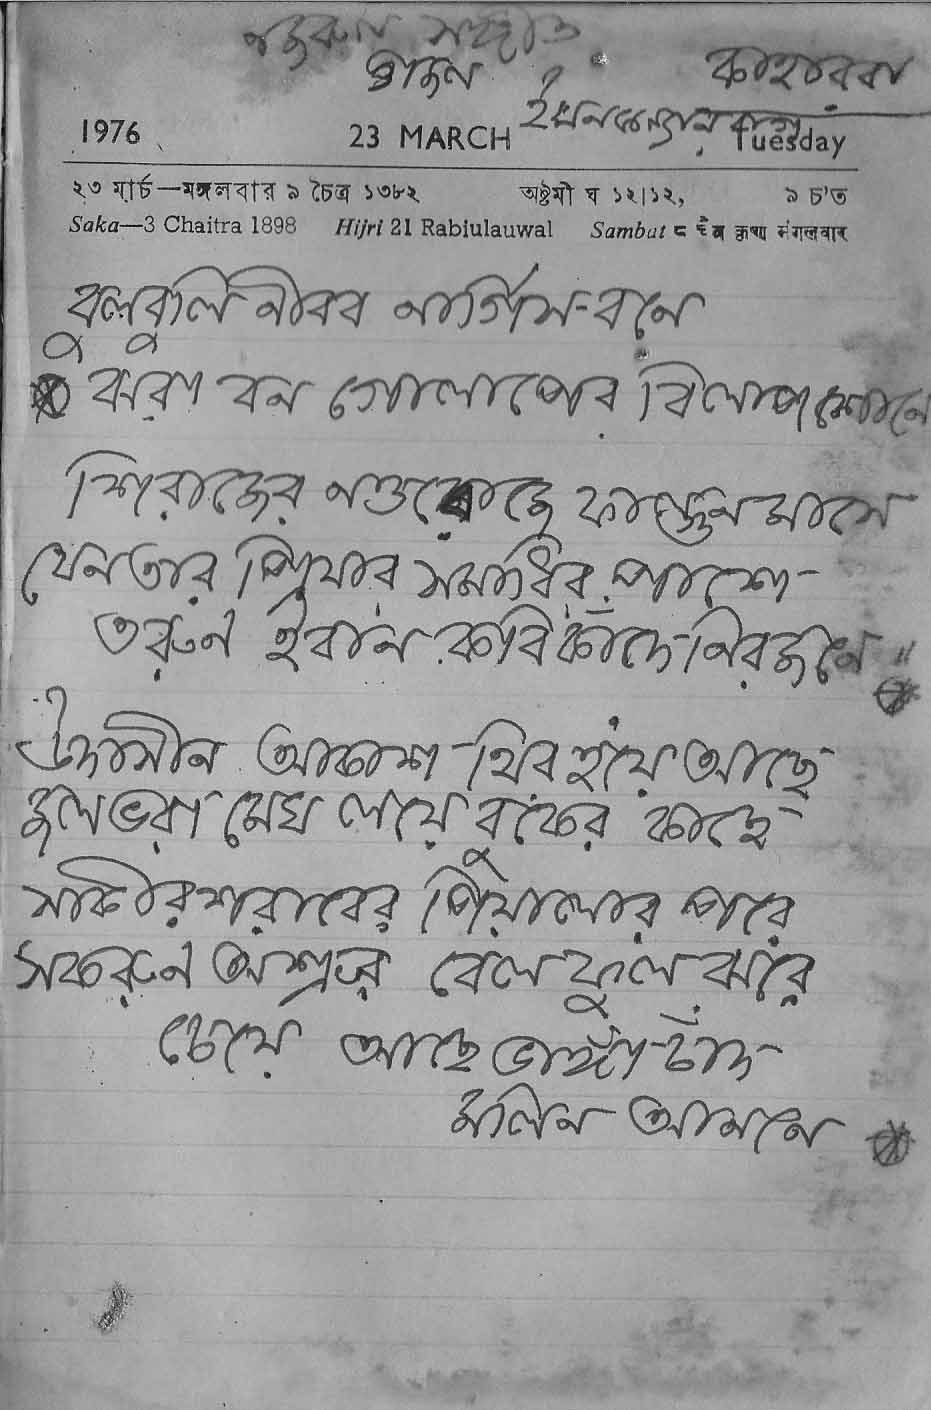 নজরুল সঙ্গীত
কাহারবা
1976 23 MARCH Tuesday
২৩ মার্চ—মঙ্গলবার ৯ চৈত্র ১৩৮২ অষ্টমী ঘ ১২।১২, ৯ চ'ত
Saka—3 Chaitra 1898 Hijri 21 Rabiulauwal Sambat ८ चैत्र कृष्ण मंगलवार
বুলবুলি নীরব নার্গিস-বনে
ঝরা বন গোলাপের বিলাপ শোনে
শিরাজের নওরোজে ফাল্গুন মাসে
যেন তার প্রিয়ার সমাধির পাশে
তরুন ইরান কবি কাঁদে নিরজনে
উদাসীন আকাশ থির হয়ে আছে
জলভরা মেঘ লয়ে বুকের কাছে
সাকীর শরাবের পিয়ালার পরে
সকরুন অশ্রুর বেল ফুল ঝরে
চেয়ে আছে ভাঙ্গা চাঁদ
মলিন আননে